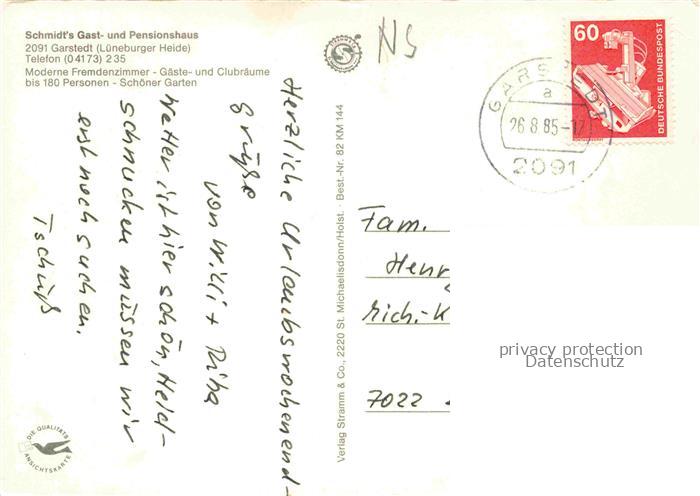 Schmidt's Gast- und Pensionshaus
2091 Garstedt (Lüneburger Heide)
Telefon (0 41 73) 2 35
Moderne Fremdenzimmer - Gäste- und Clubräume
bis 180 Personen - Schöner Garten
NS
60
DEUTSCHE BUNDESPOST
GARSTEDT
a
26.8.85-17
2091
Herzliche Urlaubswochenend-
Grüße
von Willi +
Wetter ist hier schön, Heid-
schnucken müssen wir
erst noch suchen.
Tschüß
Verlag Stramm & Co., 2220 St. Michaelisdonn/Holst. · Best.-Nr. 82 KM 144
Fam.
Henr
Rich.-K
7022
privacy protection
Datenschutz
DIE QUALITÄTS
ANSICHTSKARTE